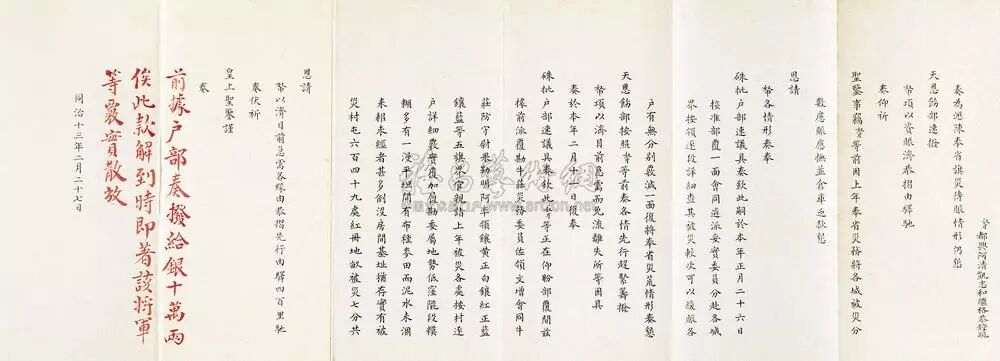 都興阿清凱志和繼格恭鏜疏
奏為瀝陳奉省旗災待賑情形仍懇
天恩飭部速撥
帑項以資賑濟恭摺由驛馳
奏仰祈
聖鑒事竊等前因上年奉省災務將各城被災分
數應賑應撫並倉庫乏欵懇
恩請
帑各情形奏奉
硃批户部速議具奏欽此嗣於本年正月二十六日
接准部覆一面會同遴派妥實委員分赴各城
界按領逐段詳細查其被災較次可以緩賑各
户有無分别蠲減一面復將奉省災荒情形奏懇
天恩飭部按照等前奏各情先行趕緊籌撥
帑項以濟目前急需而免流離失所等因具
奏於本年二月十日復奉
硃批户部速議具奏欽此等正在仰盼部覆間茲
據前派覆勘牛莊災務委員佐領文增會同牛
莊防守尉果勒明阿率領鑲黄正白鑲紅正藍
鑲藍等五旗界官親詣上年被災各處按村逐
户詳細覈實覆加履勘委屬地勢低窪隴段模
糊多有一漫平坦間有布種麥田而泥水未涸
未耕未經者甚多倒沒房間基址猶存實有被
災村屯六百四十九處紅冊地畝被災七分共
恩請
帑以濟目前急需各緣由恭摺先行由驛四百里馳
奏伏祈
皇上聖鑒謹
奏
前據户部奏撥給銀十萬兩
俟此款解到時即著該將軍
等覈實散放
同治十三年二月二十七日